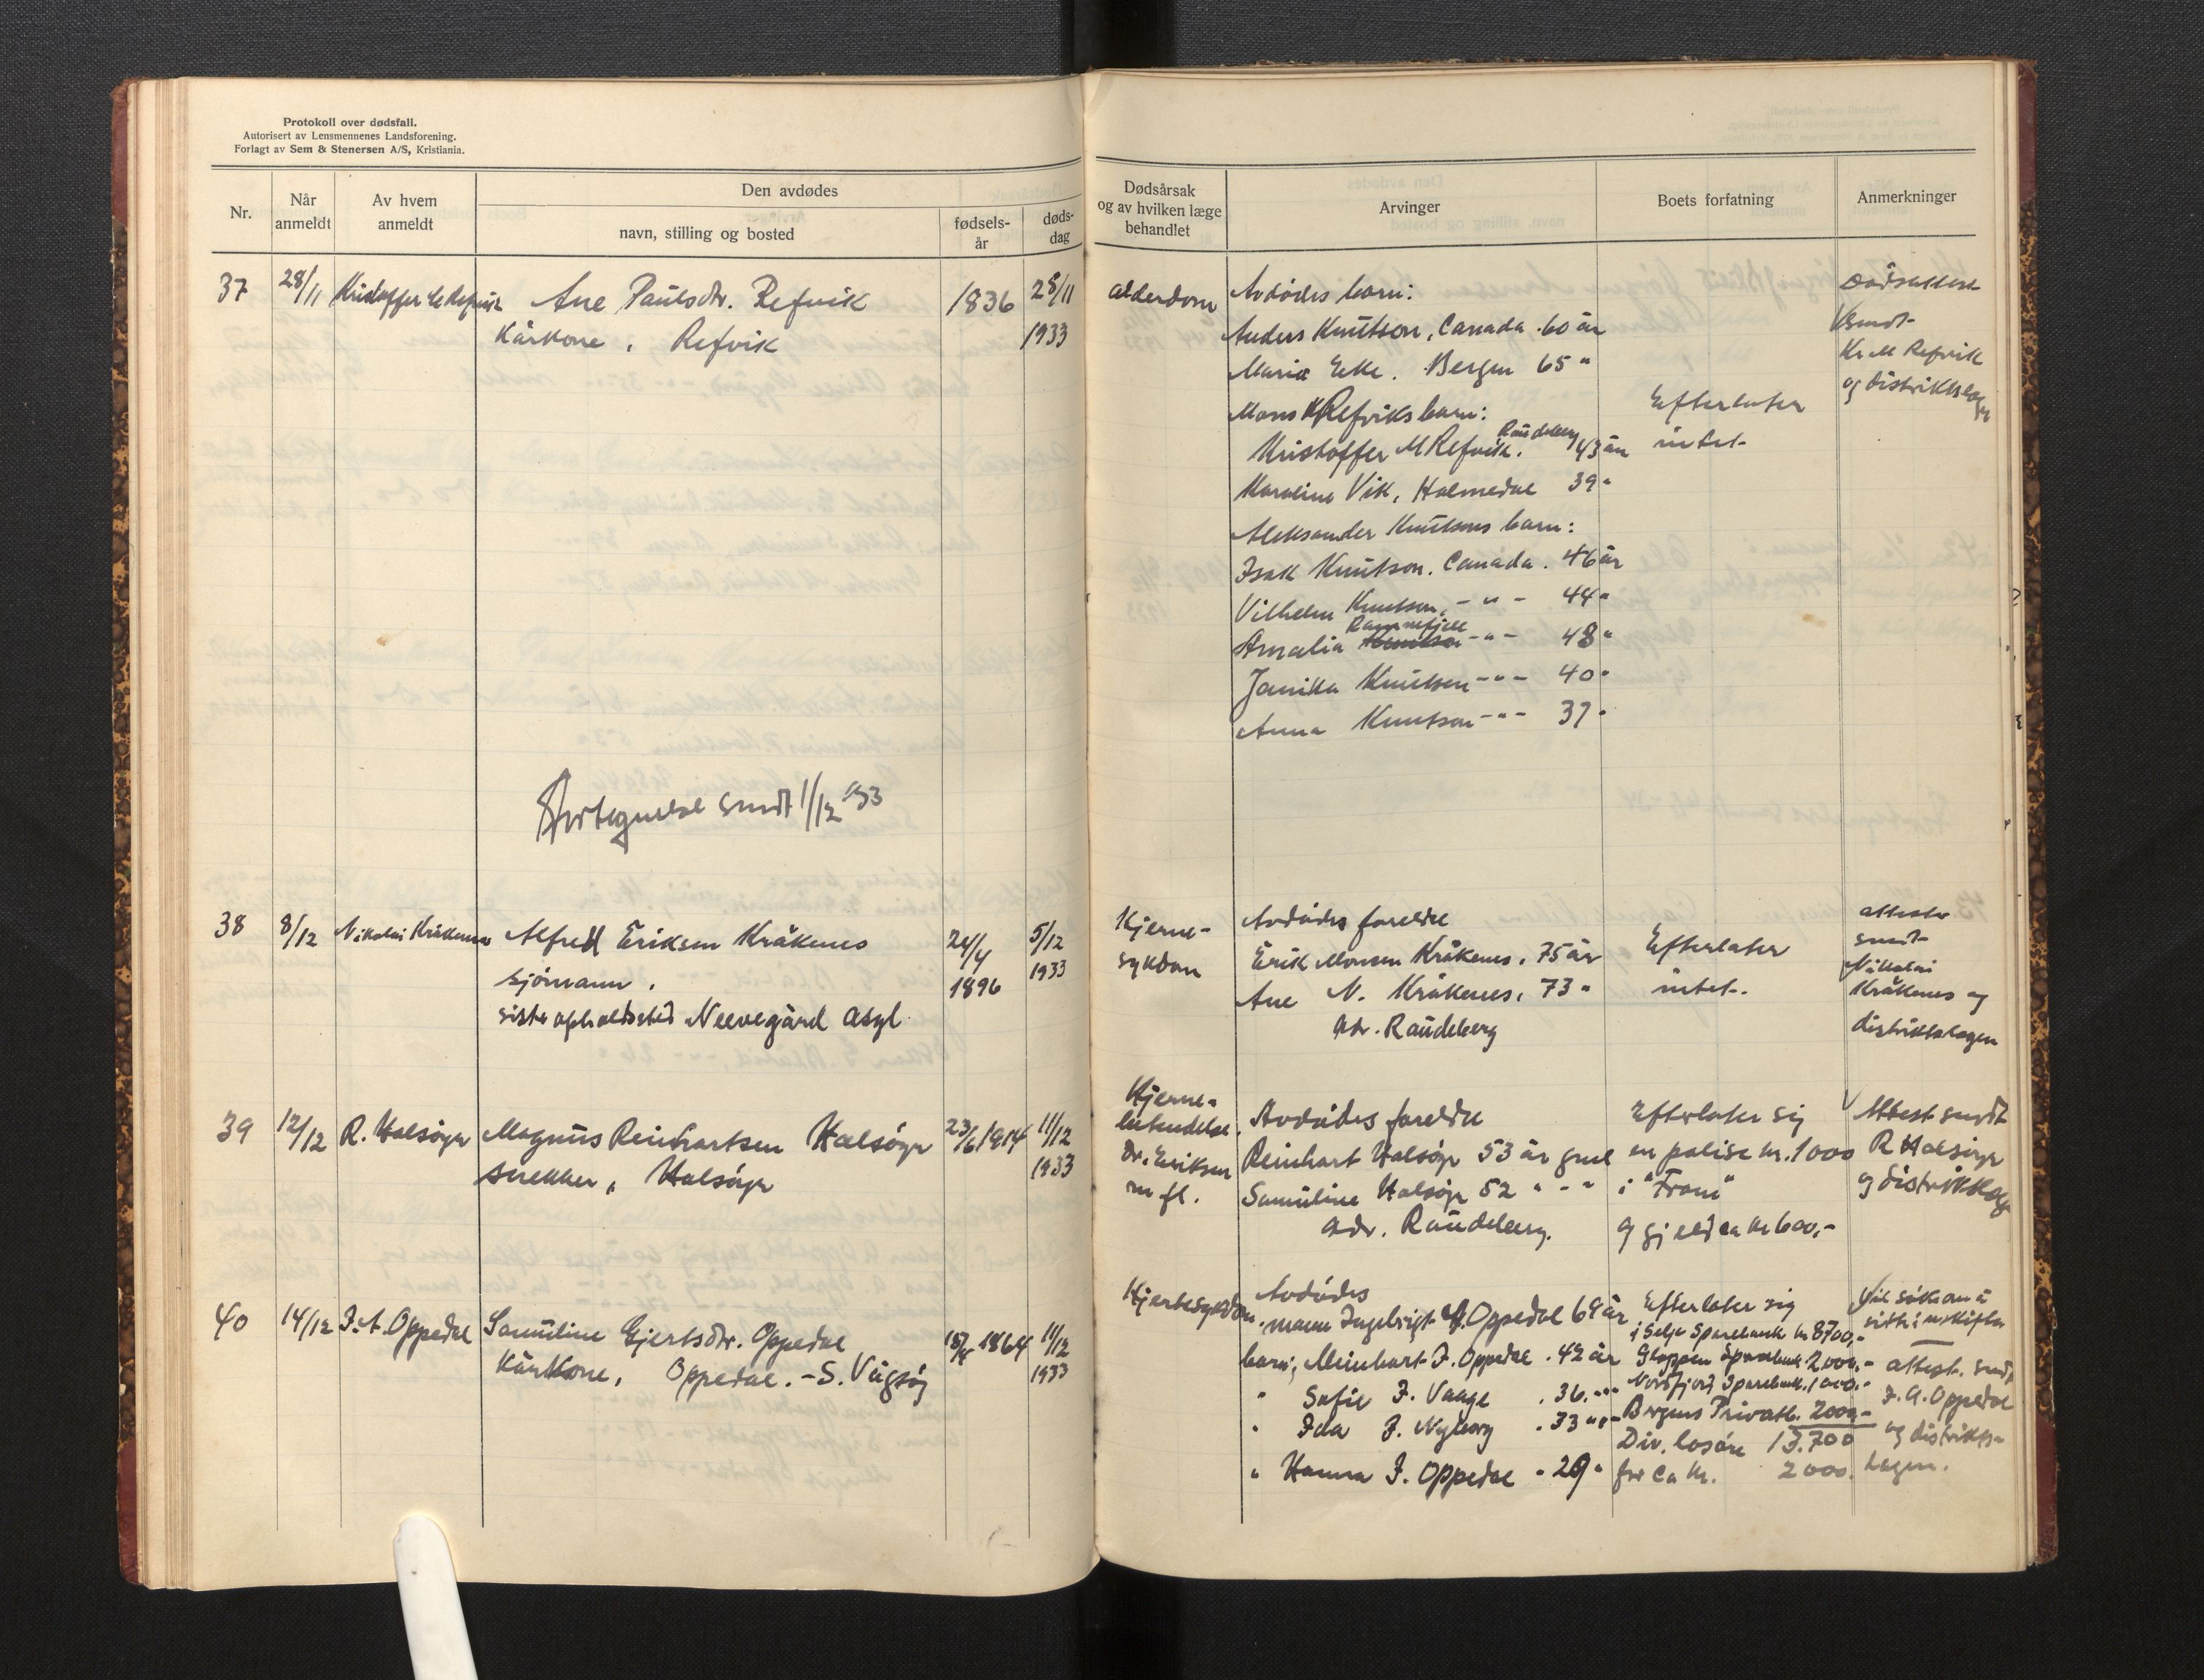 Protokoll over dødsfall.
Autorisert av Lensmennenes Landsforening.
Forlagt av Sem & Stenersen A/S, Kristiania.
Nr.
Når anmeldt
Av hvem anmeldt
Den avdødes
navn, stilling og bosted
fødsels-år
døds-dag
Dødsårsak og av hvilken læge behandlet
Arvinger
Boets forfatning
Anmerkninger
37 28/11 Kristoffer Refvik Ane Paulsdtr. Refvik 1836 25/11
Kårkone, Refvik 1933
alderdom
Avdødes barn:
Anders Knutson, Canada. 60 år
Maria Eke. Bergen 65 "
Mons K Refviks barn:
Raudeberg
Kristoffer M Refvik. 43 år
Karoline Vik, Holmedal 39 "
Aleksander Knutsons barn:
Isak Knutson. Canada. 46 år
Vilhelm Knutson, - " - 44 "
Rammefjell
Amalia Knutson - " - 48 "
Janika Knutson - " - 40 "
Anna Knutson - " - 37 "
Efterlater
intet
Dødsattest
sendt
Kr. M Refvik
og distriktslegen
Fortegnelse sendt 1/12 '33
38 8/12 Nikolai Kråkenes Alfred Eriksen Kråkenes 24/4 5/12
sjømann. 1896 1933
siste opholdssted Neevegård Asyl.
Hjerne-
sykdom
Avdødes foreldre
Erik Monsen Kråkenes. 75 år
Ane N. Kråkenes, 73 "
adr. Raudeberg
Efterlater
intet.
attester
sendt
Nikolai
Kråkenes og
distriktslegen
39 12/12 R. Halsøyr Magnus Reinhartsen Halsøyr 23/6 1914 11/12
snekker, Halsøyr 1933
Hjerne-
betendelse.
Dr. Eriksen
m fl.
Avdødes foreldre
Reinhart Halsøyr 53 år gml
Samuline Halsøyr 52 " - "
adr. Raudeberg.
Efterlater sig
en polise kr. 1000
i "Fram"
og gjeld ca kr 600,-
Attest sendt
R Halsøyr
og distriktslege
40 14/12 I. A. Oppedal Samuline Gjertsdtr. Oppedal 1864 11/12
Kårkone, Oppedal. - S. Vågsøy 1933
Hjertesykdom.
Avdødes
mann Ingebrigt A. Oppedal 69 år
barn; Meinhart I. Oppedal. 42 år
" Sofie I. Vaage. 36. "
" Ida I. Nyborg. 33 " "
" Hanna I. Oppedal - 29 "
Efterlater sig
i Selje Sparebank kr 8700,-
Gloppen Sparebank 2000,-
Nordfjord Sparebank. 1000.-
Bergens Privatb. 2000,-
Div. løsøre 13.700
for ca kr. 2000.
Vil søke om å
sitte i uskiftet
attest. sendt
I. A. Oppedal
og distrikts-
legen.